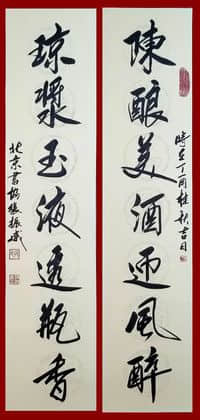 陳釀美酒迎風醉
時在丁酉桂秋吉日
瓊漿玉液透瓶香
北京書協張振威